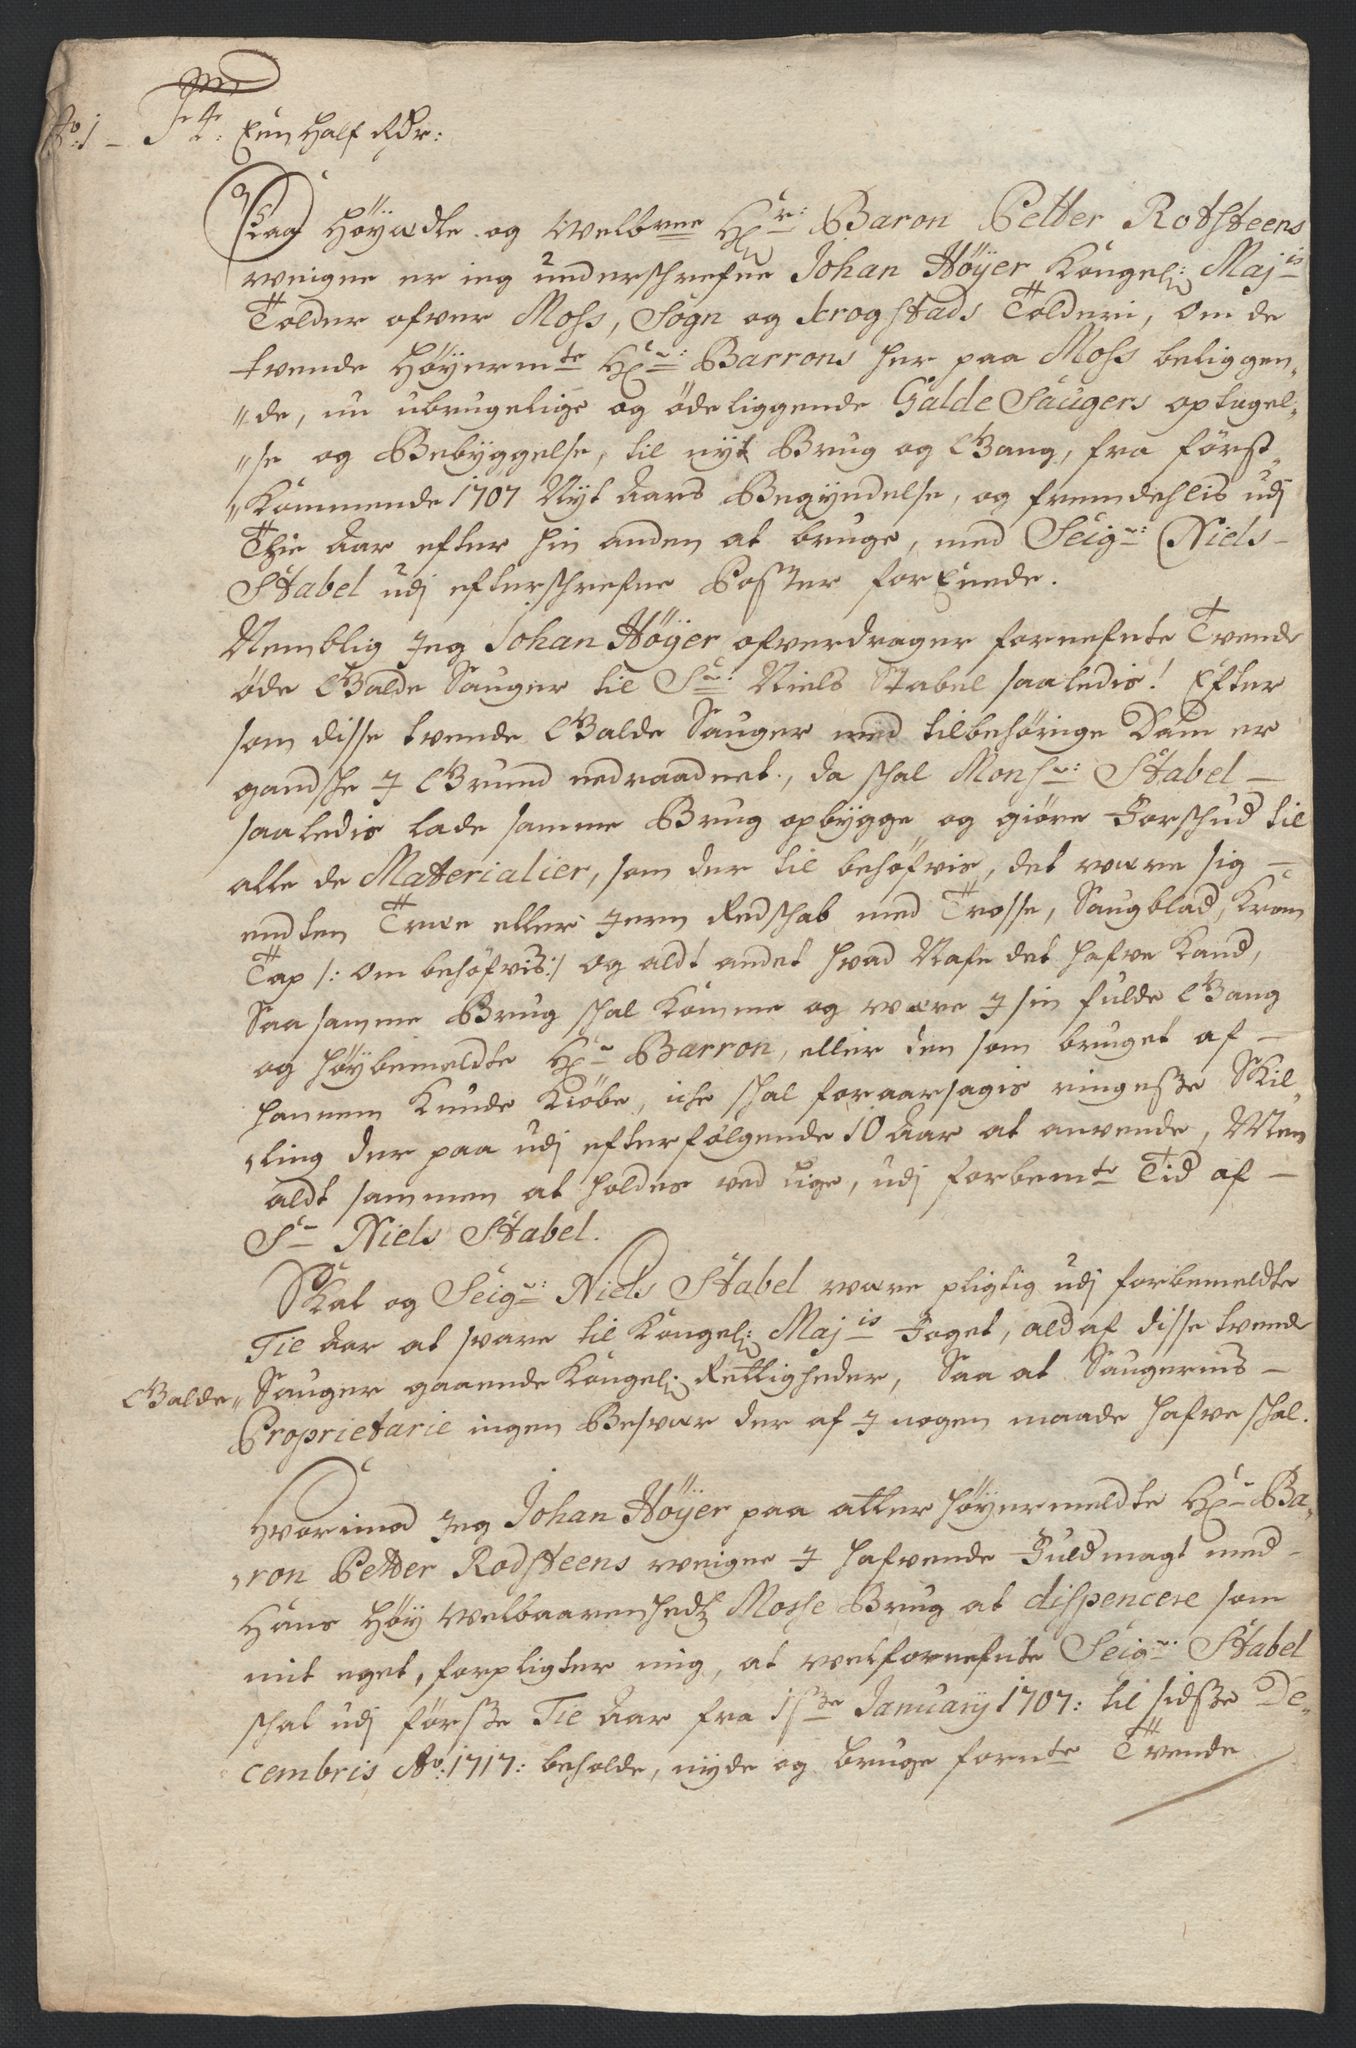 No: 1 – F 4: Een half Rdr:
Paa Høyædle og Welbrne Hr: Baron Petter Rotsteens
weigne er ieg underschrefne Johan Höÿer Kongel: Majts
Tolder ofver Moss, Sogn og Krogstads Tolderi, om de
tvende Höyermte Hr: Barrons her paa Moss beliggen„
„de, nu ubrugelige og øde liggende Galde Saugers optagel„
„se og Bebyggelse, til nyt Brug og Gang, fra først„
„kommende 1707 Nyt Aars Begyndelse, og fremdehlis udj
Thie Aar efter hin anden at bruge, med Seigr: Niels
Stabel udj efterschrefne Poster forEenede.
Nemblig Jeg Johan Höÿer ofverdrager fornefnte Tvende
øde Galde Sauger til Sr: Niels Stabel saaledis! Efter
som disse tvende Galde Sauger med tilbehørige Dam er
gandsche J Grund nedraadnet., da schal Monsr: Stabel –
saaledis lade samme Brug opbygge og giøre Forschud til
alle de Materialier, som der til behøfvis, det være sig –
endten Træe eller Jern Redschab med Trosse, Saugblad, Kron
Tap /: om behøfvis:/ og aldt andet hvad Nafn det hafve kand,
Saa samme Brug schal komme og være J sin fulde Gang
og høybemeldte Hr Barron, eller den som bruget af –
hannem kunde kiøbe, iche schal foraarsagis ringeste Skil
„ling der paa udj efterfølgende 10 Aar at anvende, Men
aldt sammen at holdes ved lige, udj forbemte Tid af –
Sr Niels Stabel.
Skal og Seigr: Niels Stabel være pligtig udj forbemeldte
Tie Aar at svare til Kongel: Majts Foget, ald af disse tvende
Galde„ Sauger gaaende Kongel: Rettigheder, Saa at Saugernis –
Proprietarie ingen Besvær der af J nogen maade hafve schal.
Hvorimod Jeg Johan Höÿer paa atter høyermeldte Hr Ba„
„ron Petter Rodsteens weigne J hafvende Fuldmagt med –
Hans Høy Welbaarenhedtz Mosse Brug at dispencere som
mit eget, forpligter mig, at velfornefnte Seigr: Stabel
schal udj første Tie Aar fra 1ste Januarÿ 1707: til sidste De„
cembris Ao: 1717: beholde, nyde og bruge fornte Tvende